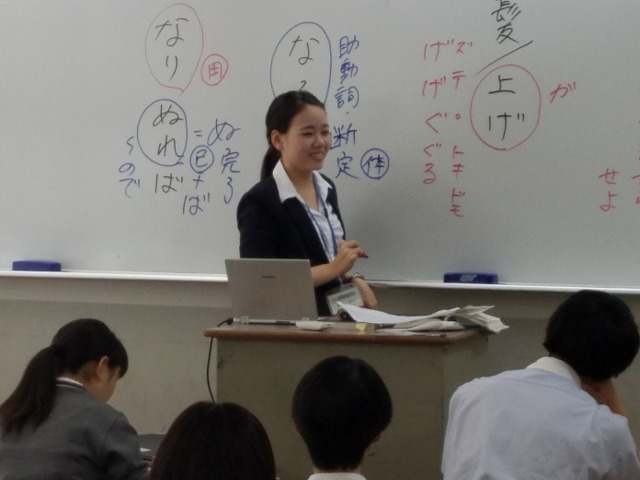 せよ
が
髪
上げ
ズデ。トキドモ
げげぐぐる
助動詞・断定 体
な
ぬ完了
=
已+ば
なり 用
ぬれば
~ので